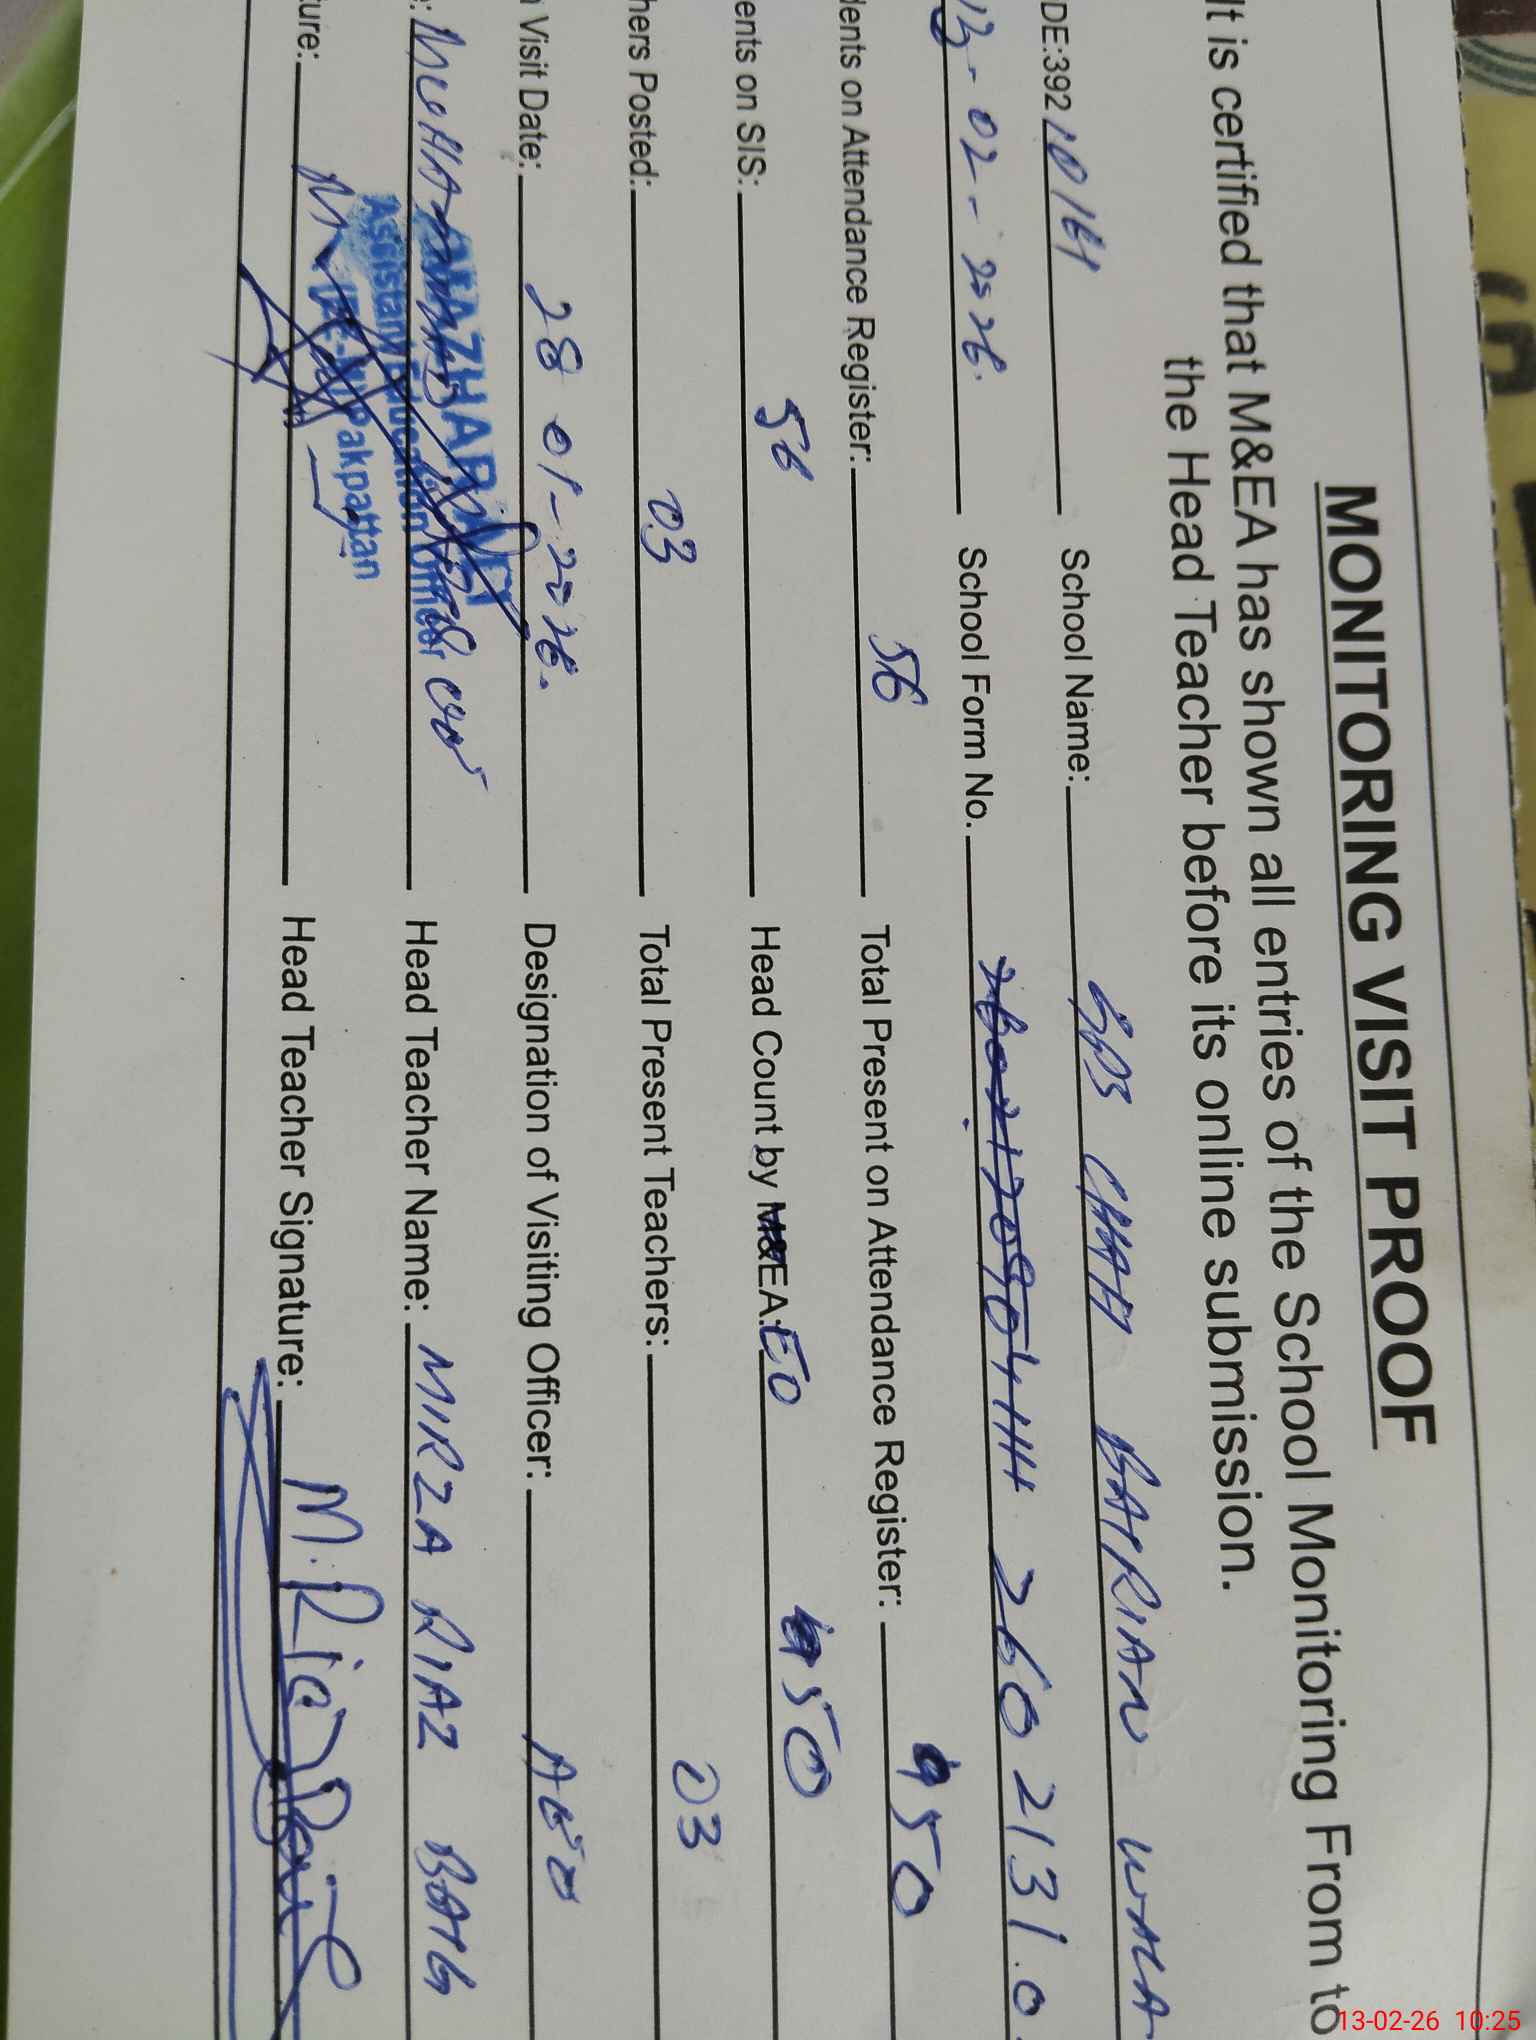 MONITORING VISIT PROOF
It is certified that M&EA has shown all entries of the School Monitoring From to
the Head Teacher before its online submission.
DE:392 10161 School Name: GPS CHAH BAIRIAN WALA
13-02-2026. School Form No. 2602131.0
dents on Attendance Register: 56 Total Present on Attendance Register: 50
ents on SIS: 56 Head Count by M&EA: EO 50
hers Posted: 03 Total Present Teachers: 03
Visit Date: 28 01-2026. Designation of Visiting Officer: AEO
: MUHAMMAD MAZHAR Head Teacher Name: MIRZA RIAZ BAIG
Assistant Education Officer
Pakpattan
ture: Head Teacher Signature: M. Riaz Baig
13-02-26 10:25